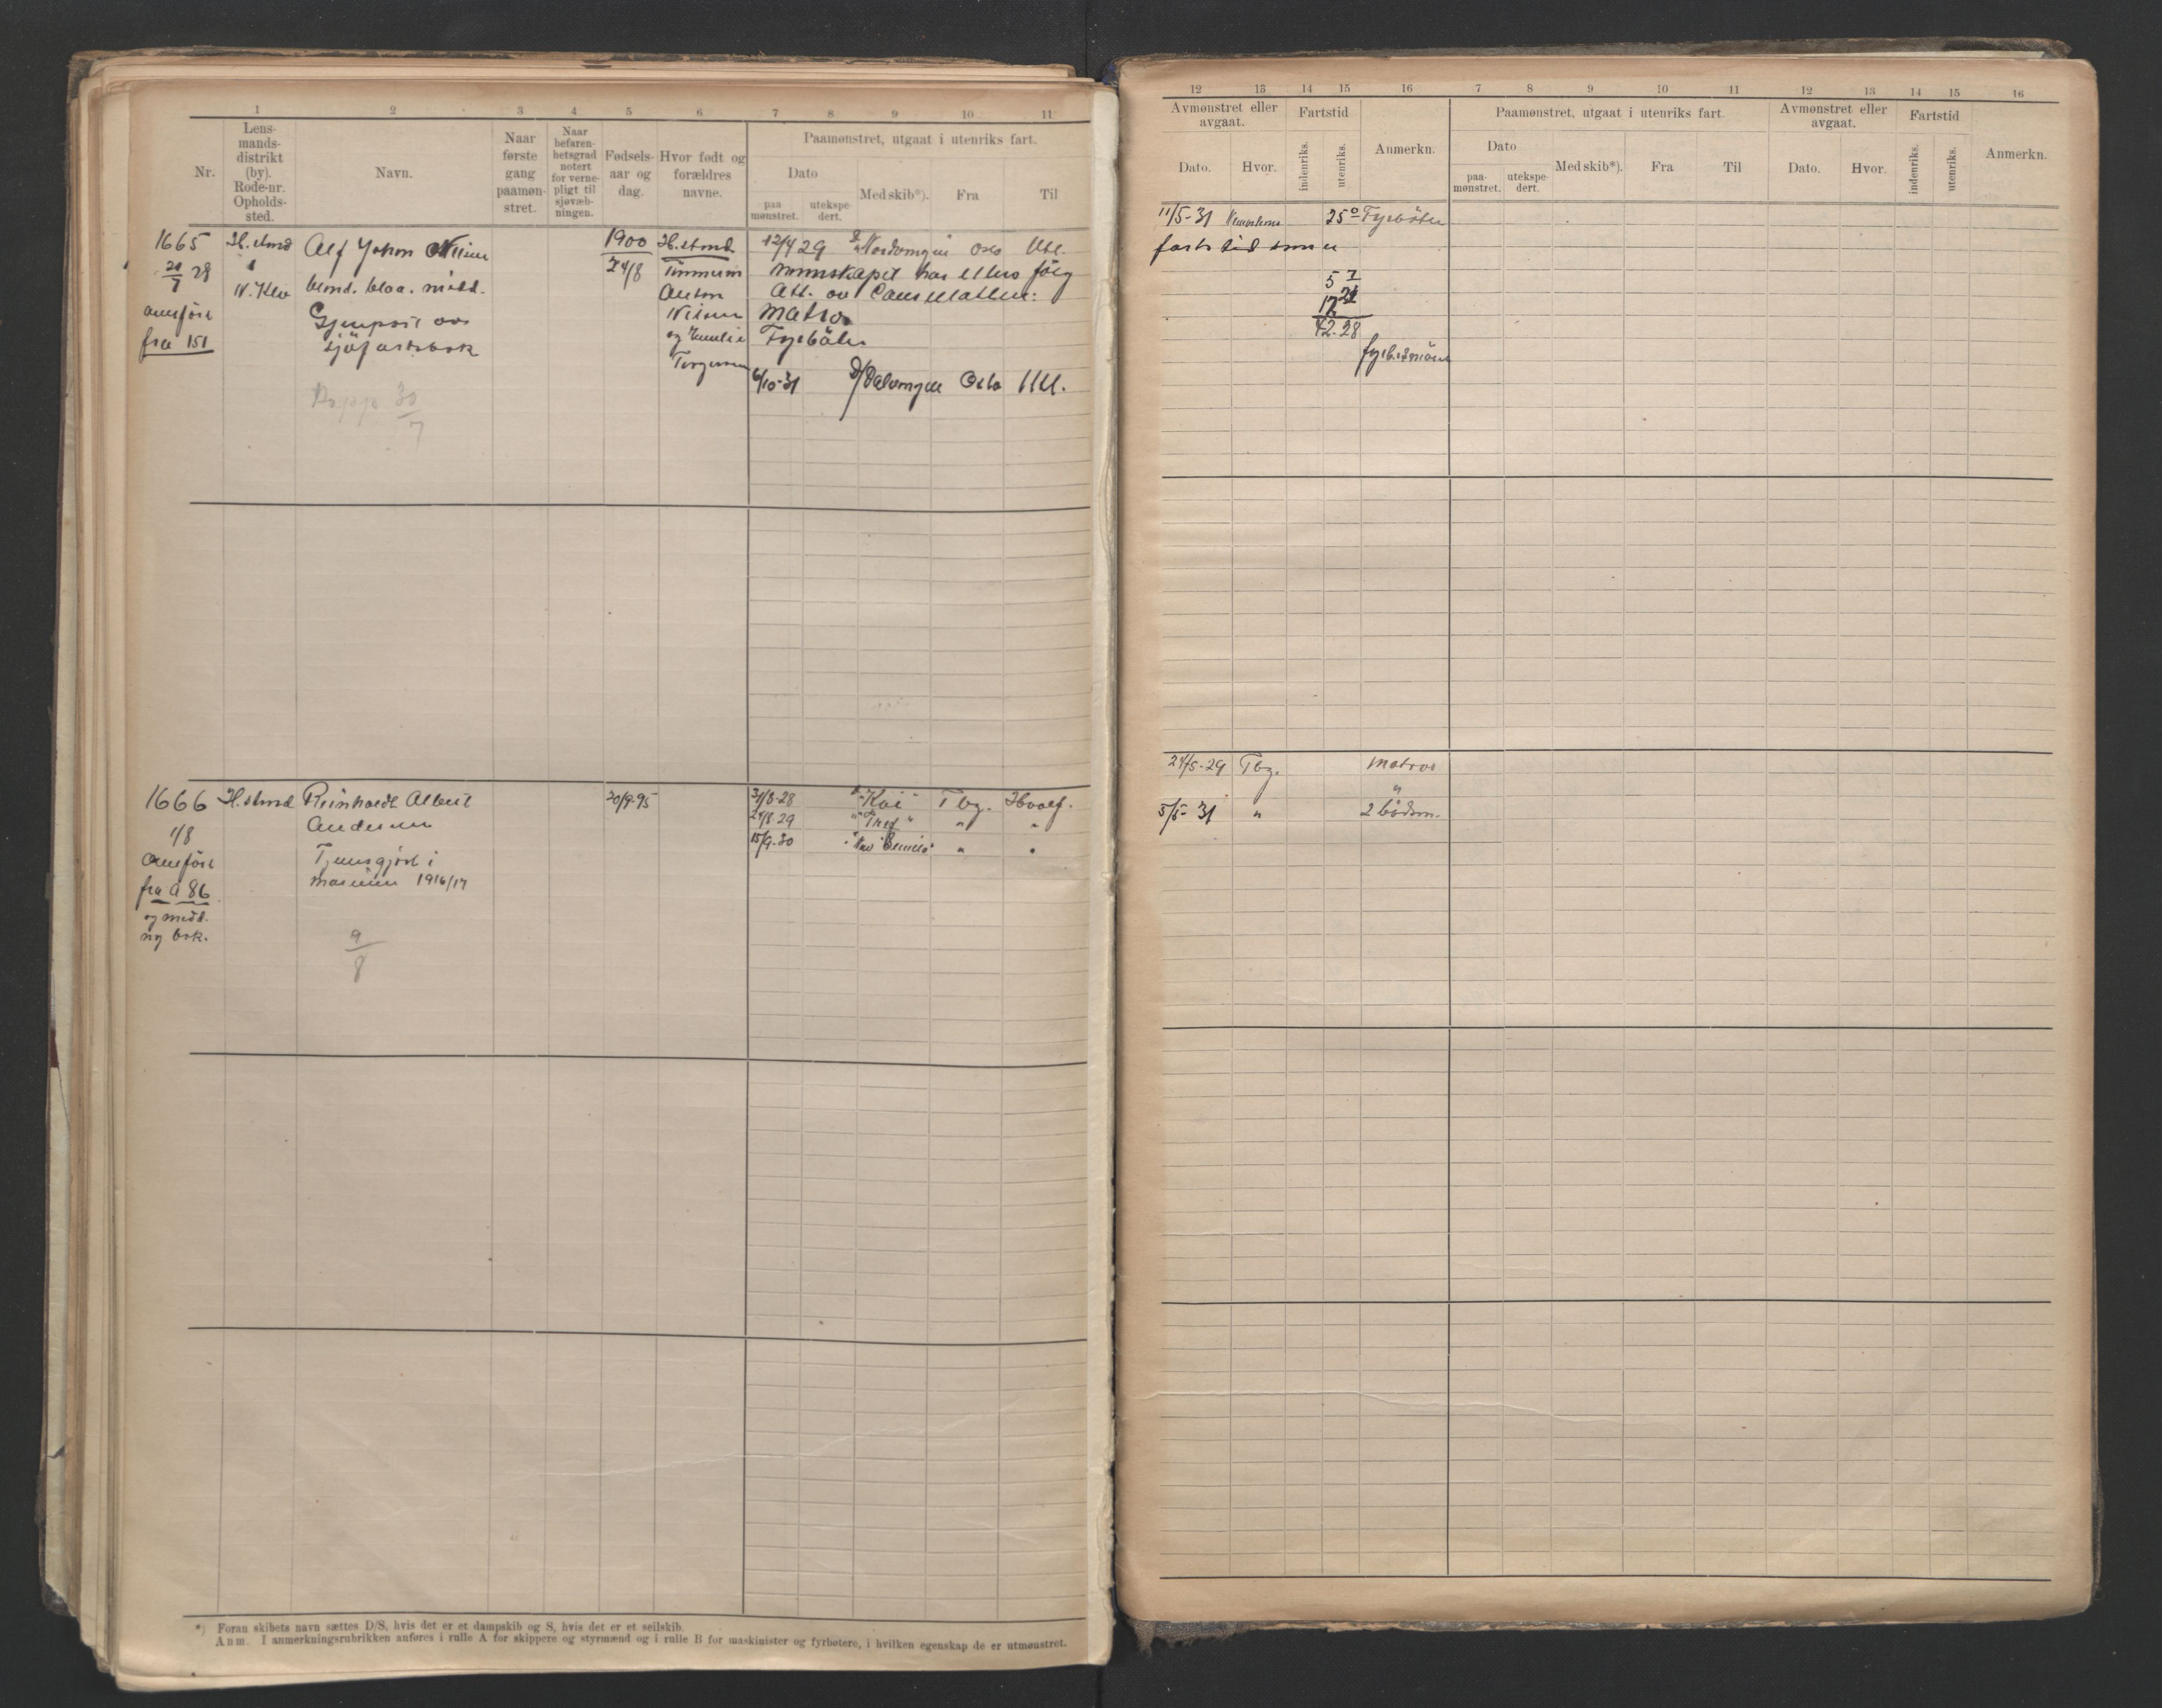 1 2 3 4 5 6 7 8 9 10 11
Nr.
Lens-
mands-
distrikt
(by).
Rode-nr.
Opholds-
sted.
Navn.
Naar
første
gang
paamøn-
stret.
Naar
befaren-
hetsgrad
notert
for verne-
pligt til
sjøvæb-
ningen.
Fødsels-
aar og
dag.
Hvor født og
forældres
navne.
Paamønstret, utgaat i utenriks fart.
Dato
paa
mønstret.
utekspe-
dert.
Med skib*).
Fra
Til
1665
21/7 28
fra 151
H.strand
Alf Johan Nilsen
blond. blaa. midd.
Gjenpart av
sjøfartsbok
30/7
1900
24/8
H.strand
Anton
Nilsen
og
12/4 29 Oslo Utl.
mannskapet har ellers følg
Att. av
Matros
Fyrbøter
6/10-31 Oslo Utl.
1666
1/8
fra A 86
og medd.
ny bok.
H.strand
Reinhardt Albert
Andersen
Tjenesgjort i
marinen 1916/17
9/8
20/9-95
31/8-28 Tbg. Hvalf.
24/8-29 " Thor " " "
15/9-30 " "
*) Foran skibets navn sættes D/S, hvis det er et dampskib og S, hvis det er et seilskib.
Anm. I anmerkningsrubrikken anføres i rulle A for skippere og styrmænd og i rulle B for maskinister og fyrbøtere, i hvilken egenskap de er utmønstret.
12 13 14 15 16 7 8 9 10 11 12 13 14 15 16
Avmønstret eller
avgaat.
Dato.
Hvor.
Fartstid
indenriks.
utenriks.
Anmerkn.
Paamønstret, utgaat i utenriks fart.
Dato
paa-
mønstret.
utekspe-
dert.
Med skib*).
Fra
Til
Avmønstret eller
avgaat.
Dato.
Hvor.
Fartstid
indenriks.
utenriks.
Anmerkn.
11/5-31 25 0 Fyrbøter
fartstid som
5 7
42.28
24/5-29 Tbg. Matros
"
5/5-31 " 2 bådsm.